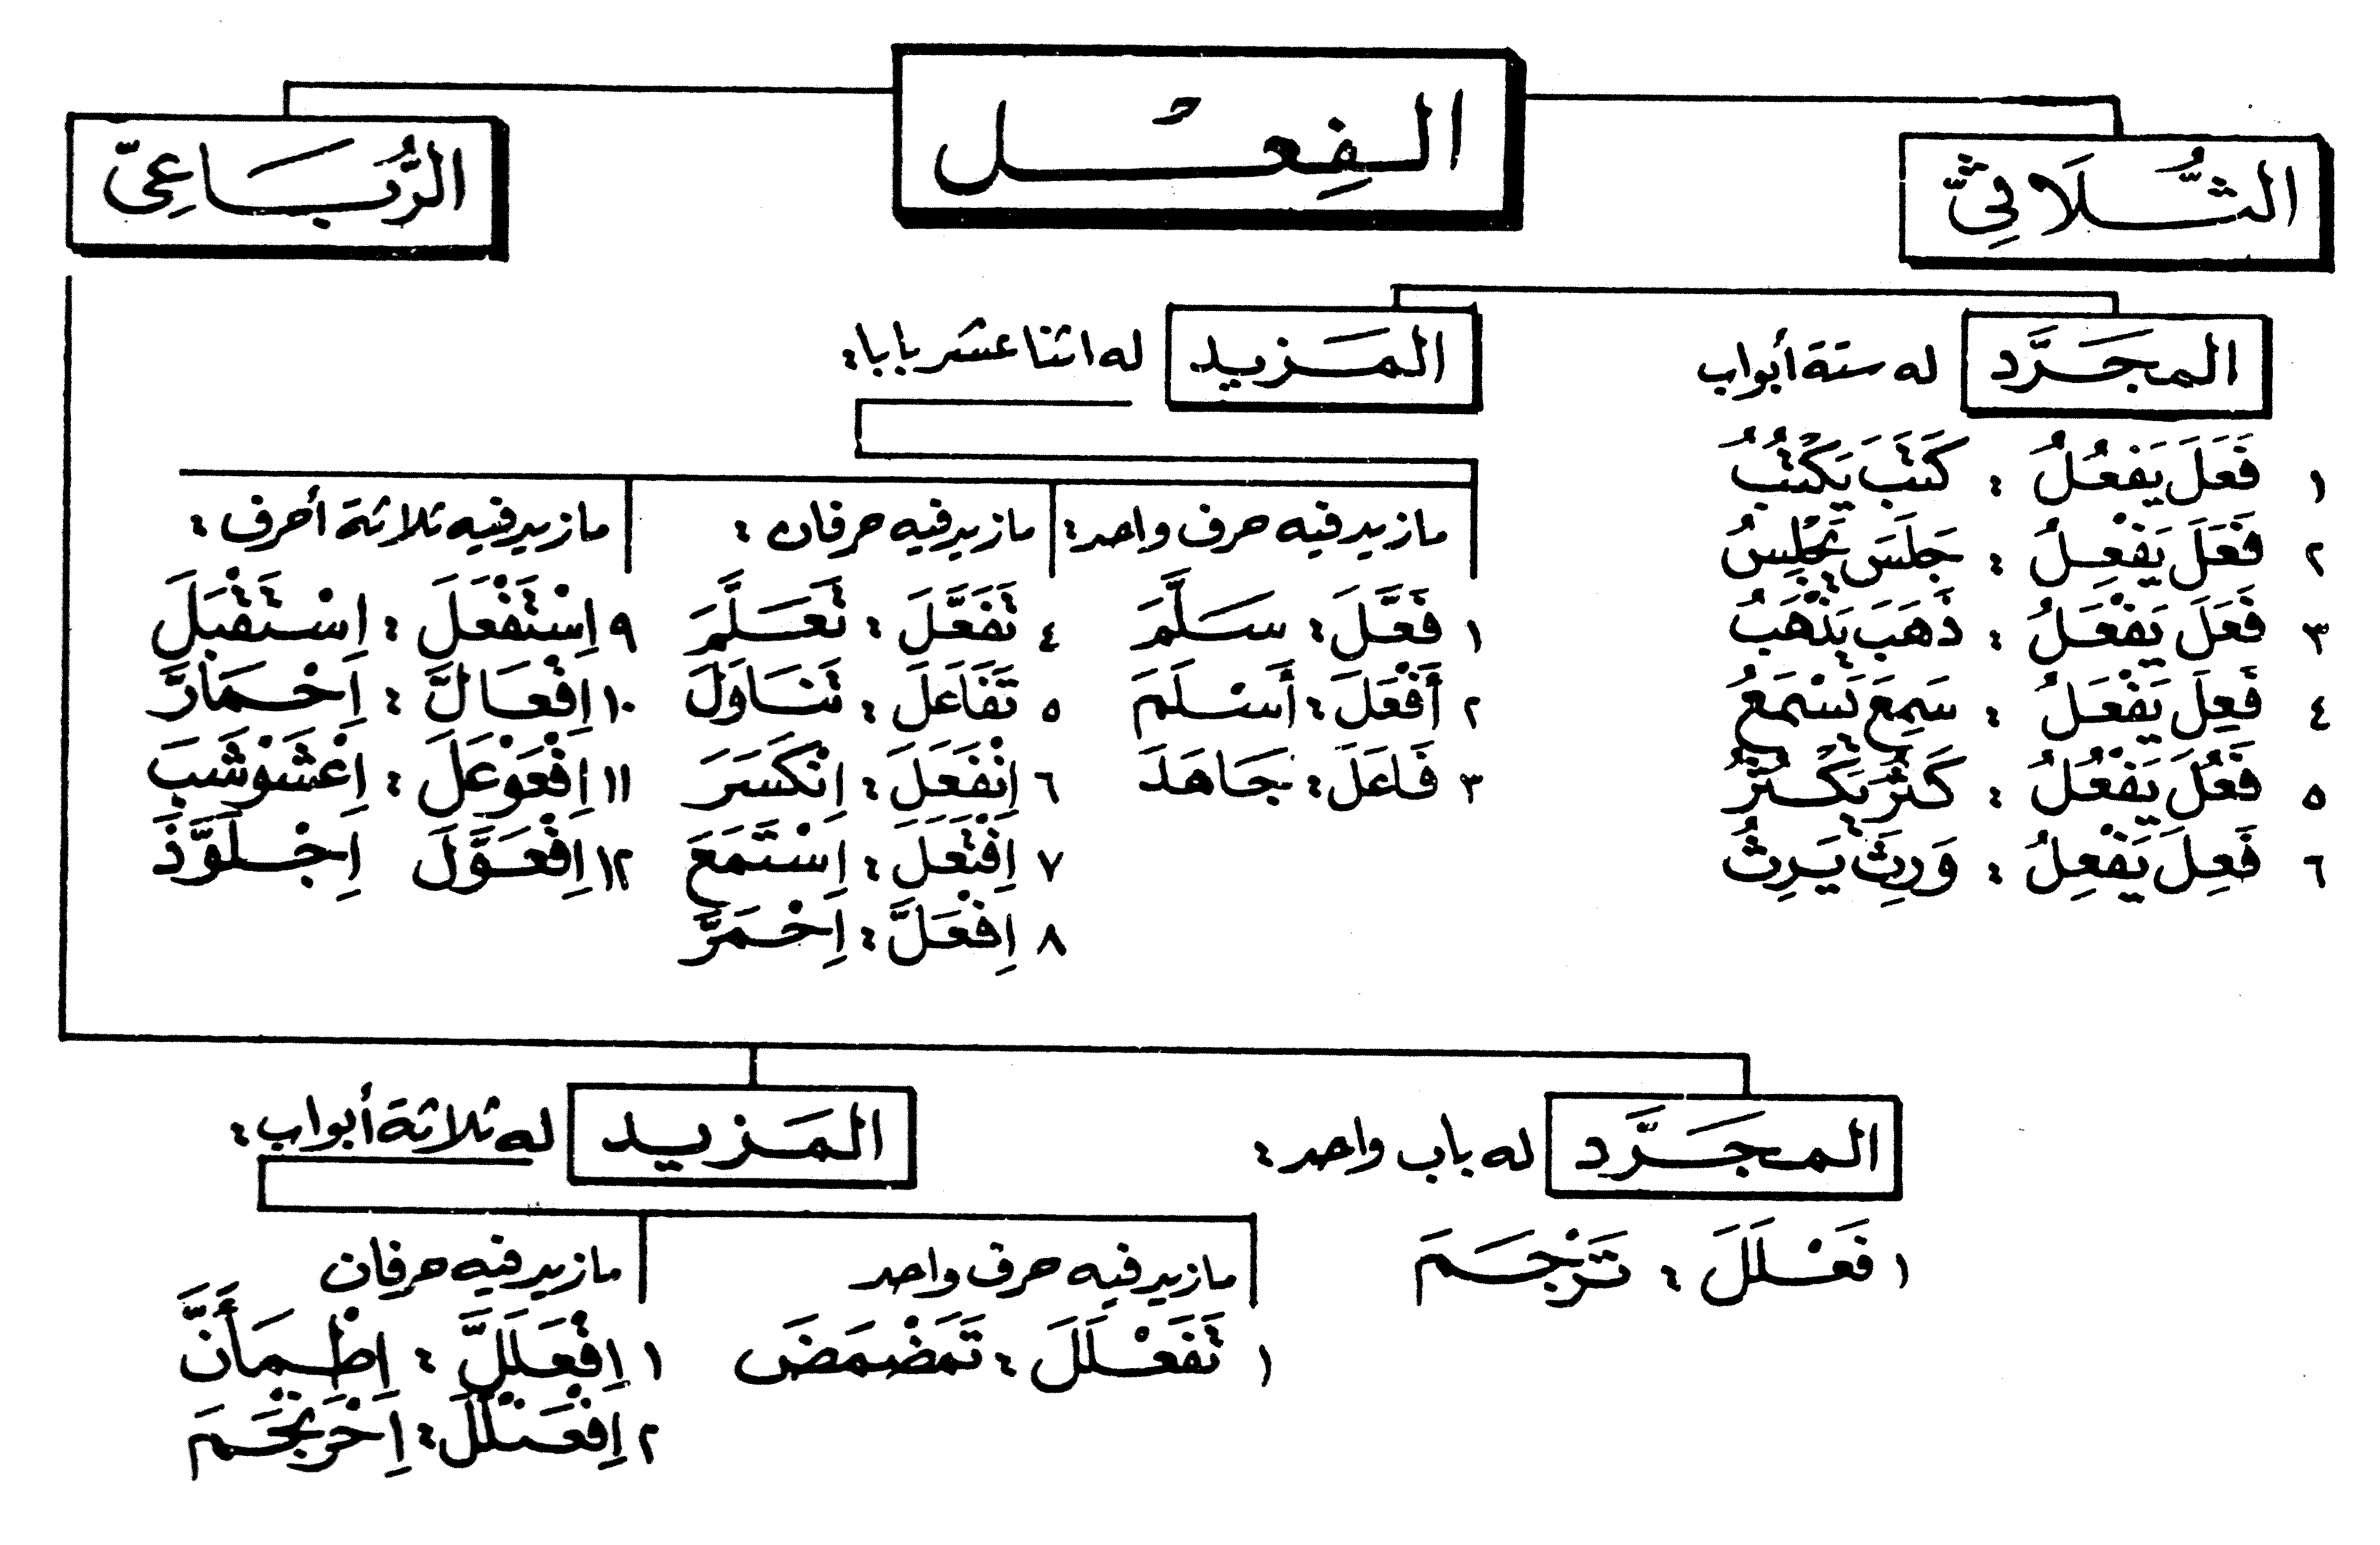 الفِعْل
الثُّلَاثِيّ
الرُّبَاعِيّ
المجَرَّد له ستة أبواب
١ فَعَلَ يَفعُلُ : كَتَبَ يَكْتُبُ
٢ فَعَلَ يَفْعِلُ : جَلَسَ يَجْلِسُ
٣ فَعَلَ يَفْعَلُ : ذَهَبَ يَذْهَبُ
٤ فَعِلَ يَفْعَلُ : سَمِعَ يَسْمَعُ
٥ فَعُلَ يَفْعُلُ : كَثُرَ يَكْثُرُ
٦ فَعِلَ يَفْعِلُ : وَرِثَ يَرِثُ
المَزيد له اثنا عشر بابا :
مازيد فيه حرف واحد :
١ فَعَّلَ : سَلَّمَ
٢ أَفْعَلَ : أَسْلَمَ
٣ فَاعَلَ : جَاهَدَ
مازيد فيه حرفان :
٤ تَفَعَّلَ : تَعَلَّمَ
٥ تَفَاعَلَ : تَنَاوَلَ
٦ اِنْفَعَلَ : اِنْكَسَرَ
٧ اِفْتَعَلَ : اِسْتَمَعَ
٨ اِفْعَلَّ : اِحْمَرَّ
مازيد فيه ثلاثة أحرف :
٩ اِسْتَفْعَلَ : اِسْتَقْبَلَ
١٠ اِفْعَالَّ : اِحْمَارَّ
١١ اِفْعَوْعَلَ : اِعْشَوْشَبَ
١٢ اِفْعَوَّلَ اِجْلَوَّذَ
المجَرَّد له باب واحد :
١ فَعْلَلَ : تَرْجَمَ
المَزيد له ثلاثة أبواب :
مازيد فيه حرف واحد
١ تَفَعْلَلَ : تَمَضْمَضَ
مازيد فيه حرفان
١ اِفْعَلَلَّ : اِطْمَأَنَّ
٢ اِفْعَنْلَلَ : اِحْرَنْجَمَ